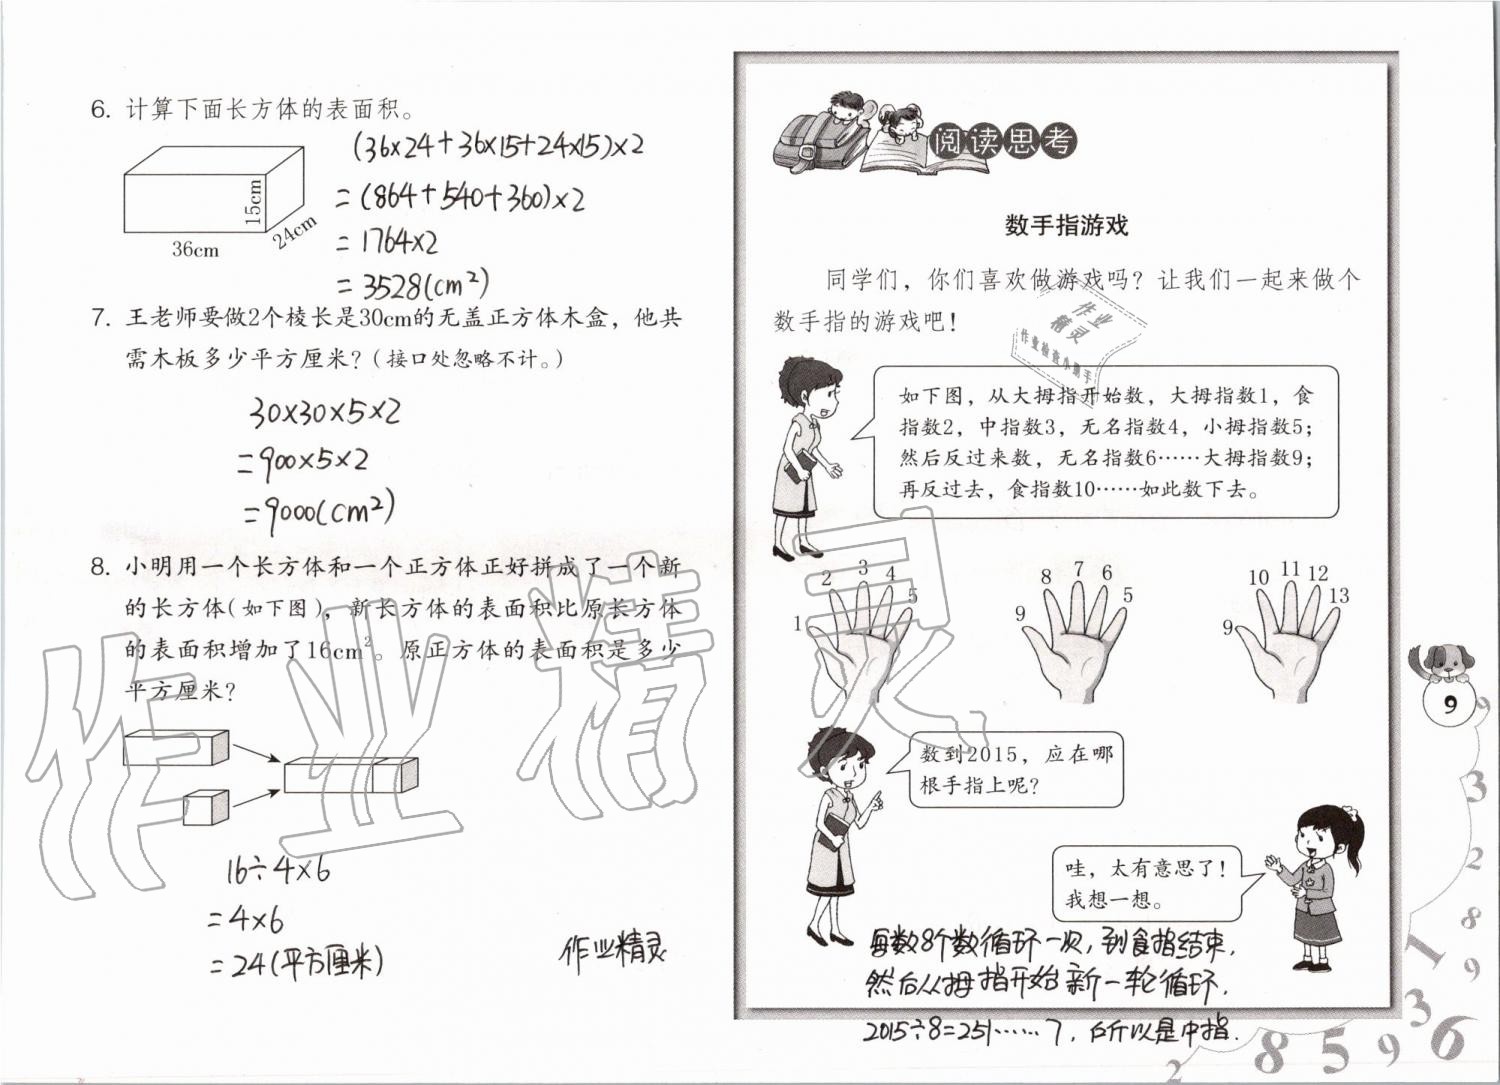 6. 计算下面长方体的表面积。
36cm
24cm
15cm
(36×24+36×15+24×15)×2
=(864+540+360)×2
=1764×2
=3528(cm²)
7. 王老师要做2个棱长是30cm的无盖正方体木盒，他共
需木板多少平方厘米？(接口处忽略不计。)
30×30×5×2
=900×5×2
=9000(cm²)
8. 小明用一个长方体和一个正方体正好拼成了一个新
的长方体(如下图)，新长方体的表面积比原长方体
的表面积增加了16cm²。原正方体的表面积是多少
平方厘米？
16÷4×6
=4×6
=24(平方厘米)
作业精灵
阅读思考
数手指游戏
同学们，你们喜欢做游戏吗？让我们一起来做个
数手指的游戏吧！
作业
精灵
作业检查小助手
如下图，从大拇指开始数，大拇指数1，食
指数2，中指数3，无名指数4，小拇指数5；
然后反过来数，无名指数6……大拇指数9；
再反过去，食指数10……如此数下去。
1 2 3 4 5
9 8 7 6 5
9 10 11 12 13
数到2015，应在哪
根手指上呢？
哇，太有意思了！
我想一想。
每数8个数循环一次，到食指结束，
然后从拇指开始新一轮循环，
2015÷8=251……7，所以是中指.
作业精灵
9
9
3
2
8
1
9
3
6
9
5
8
2